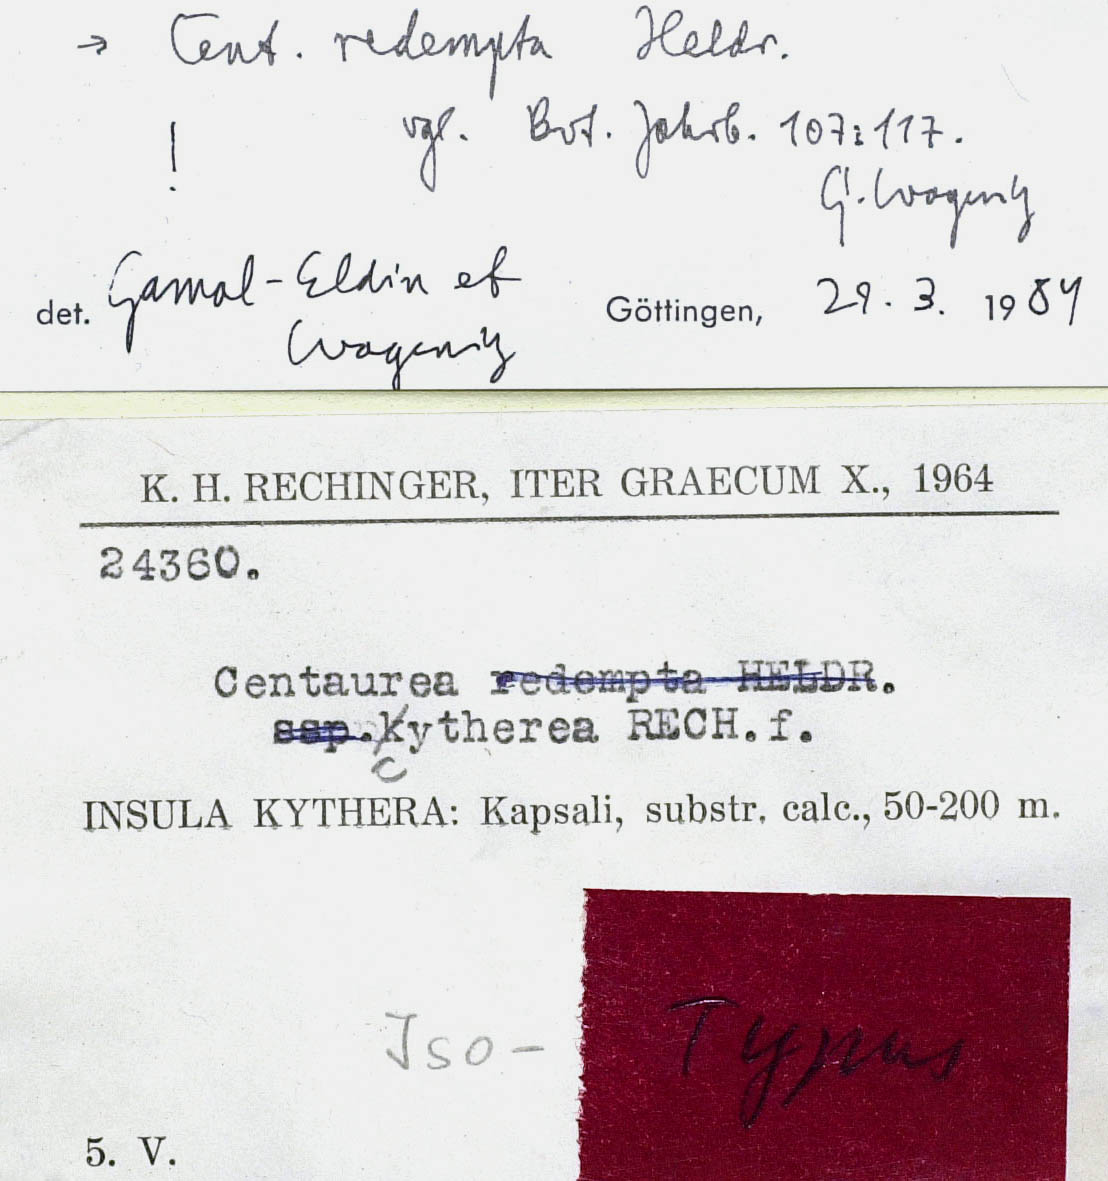 → Cent. redempta Heldr.
! vgl. Bot. Jahrb. 107:117.
G. Wagenitz
det. Gamal-Eldin et
Wagenitz
Göttingen, 29. 3. 1989
K. H. RECHINGER, ITER GRAECUM X., 1964
24360.
Centaurea redempta HELDR.
ssp. kytherea RECH. f.
c
INSULA KYTHERA: Kapsali, substr. calc., 50-200 m.
Iso- Typus
5. V.